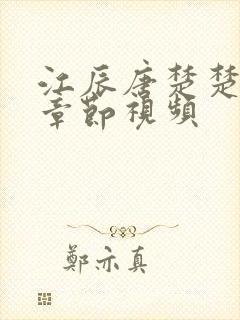 江辰唐楚楚
章節視頻
鄭亦真